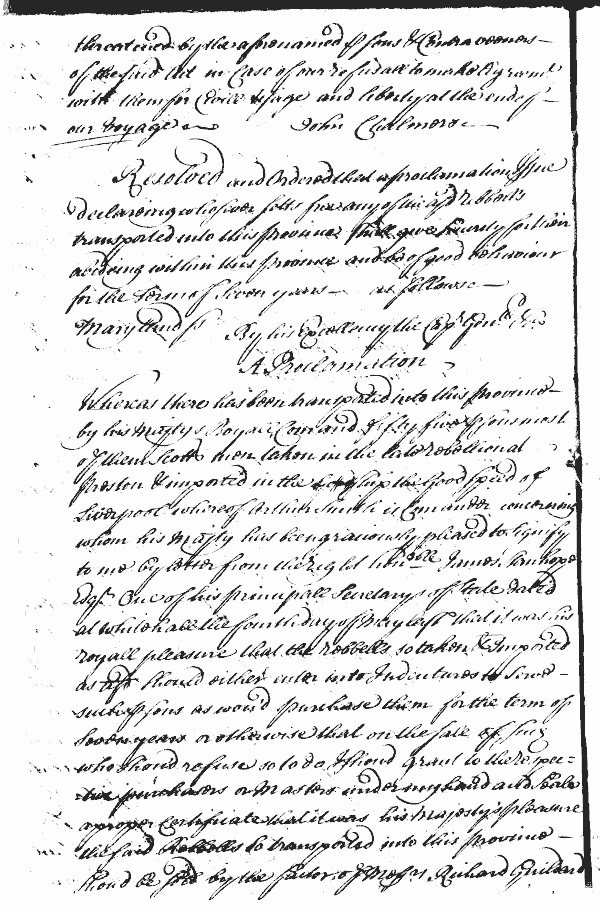 threatened by the aforenamed psons & Contraveeners
of the said Act in Case of our refusall to make Agreemt
with them for Civill Usage and liberty at the end of
our Voyage John Chalmers
Resolved and Ordered that a proclamation Issue
declareing whosoever setts free any of his said rebbells
transported into this province shall give security for their
abideing within this province and be of good behaviour
for the Terme of Seven years as followse
Maryland ss By his Excellency the Capt Genll &c
A Proclamation
Whereas there has been transported into this province
by his Matys Royall Comand fifty five psons most
of them Scotts men taken in the late rebellion at
Preston & imported in the ship the Good Speed of
Liverpool whereof Arthur Smith is Comander concerning
whom his Majty has been graciously pleased to signify
to me by letter from the right honoble James Stanhope
Esqr One of his principall Secretarys of State dated
at Whitehall the fourth day of May last that it was his
royall pleasure that the rebbells so taken & Imported
as should either enter into Indentures to serve
such psons as wou'd purchase them for the term of
Seven years or otherwise that on the sale of such
who shoud refuse so to do I shoud grant to the respec=
tive purchasers or Masters under my hand and Seale
a proper Certificate that it was his Majestys pleasure
the said Rebbells so transported into this Province
shoud be sold by the factor of Messrs Richard Guildard